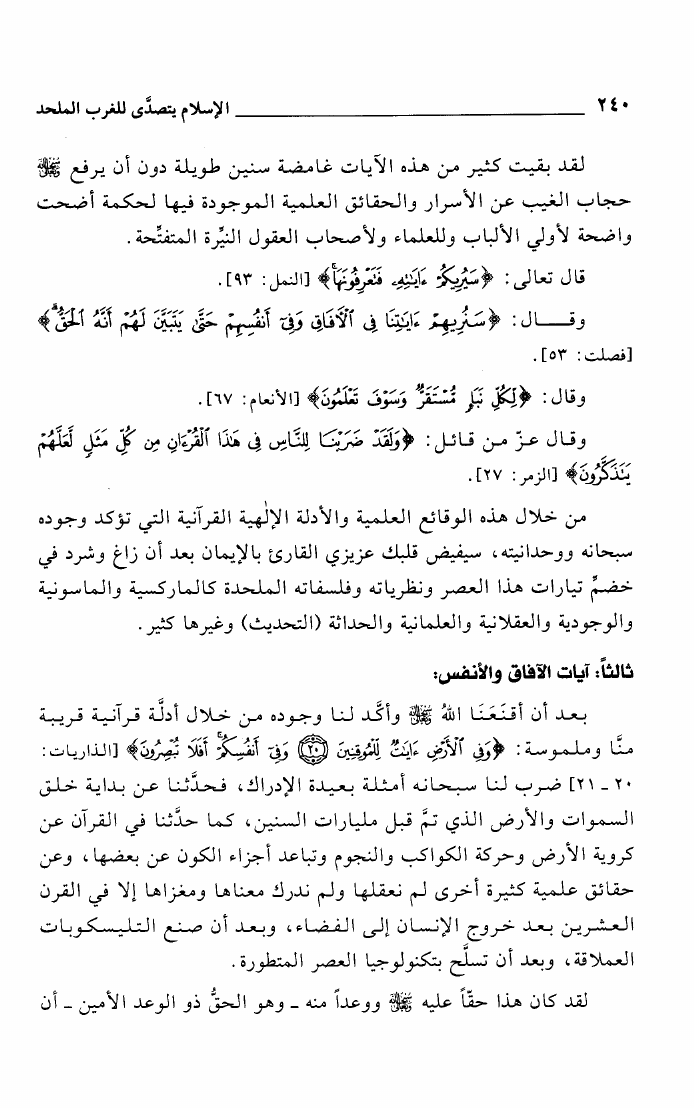 ٢٤٠ الإسلام يتصدَّى للغرب الملحد
لقد بقيت كثير من هذه الآيات غامضة سنين طويلة دون أن يرفع ﷻ
حجاب الغيب عن الأسرار والحقائق العلمية الموجودة فيها لحكمة أضحت
واضحة لأولي الألباب وللعلماء ولأصحاب العقول النيِّرة المتفتِّحة.
قال تعالى: ﴿سَيُرِيكُمْ ءَايَٰتِهِۦ فَتَعْرِفُونَهَاۚ﴾ [النمل: ٩٣].
وقـــال: ﴿سَنُرِيهِمْ ءَايَٰتِنَا فِى ٱلْءَافَاقِ وَفِىٓ أَنفُسِهِمْ حَتَّىٰ يَتَبَيَّنَ لَهُمْ أَنَّهُ ٱلْحَقُّۗ﴾
[فصلت: ٥٣].
وقال: ﴿لِكُلِّ نَبَإٍ مُّسْتَقَرٌّۚ وَسَوْفَ تَعْلَمُونَ﴾ [الأنعام: ٦٧].
وقال عزّ من قائل: ﴿وَلَقَدْ ضَرَبْنَا لِلنَّاسِ فِى هَٰذَا ٱلْقُرْءَانِ مِن كُلِّ مَثَلٍ لَّعَلَّهُمْ
يَتَذَكَّرُونَ﴾ [الزمر: ٢٧].
من خلال هذه الوقائع العلمية والأدلة الإلٰهية القرآنية التي تؤكد وجوده
سبحانه ووحدانيته، سيفيض قلبك عزيزي القارئ بالإيمان بعد أن زاغ وشرد في
خضمِّ تيارات هذا العصر ونظرياته وفلسفاته الملحدة كالماركسية والماسونية
والوجودية والعقلانية والعلمانية والحداثة (التحديث) وغيرها كثير.
ثالثاً: آيات الآفاق والأنفس:
بعد أن أقنَعَنَا اللهُ ﷻ وأكَّد لنا وجوده من خلال أدلَّة قرآنية قريبة
منَّا وملموسة: ﴿وَفِى ٱلْأَرْضِ ءَايَٰتٌ لِّلْمُوقِنِينَ ۝٢٠ وَفِىٓ أَنفُسِكُمْۚ أَفَلَا تُبْصِرُونَ﴾ [الذاريات:
٢٠ - ٢١] ضرب لنا سبحانه أمثلة بعيدة الإدراك، فحدَّثنا عن بداية خلق
السموات والأرض الذي تمَّ قبل مليارات السنين، كما حدَّثنا في القرآن عن
كروية الأرض وحركة الكواكب والنجوم وتباعد أجزاء الكون عن بعضها، وعن
حقائق علمية كثيرة أخرى لم نعقلها ولم ندرك معناها ومغزاها إلا في القرن
العشرين بعد خروج الإنسان إلى الفضاء، وبعد أن صنع التليسكوبات
العملاقة، وبعد أن تسلَّح بتكنولوجيا العصر المتطورة.
لقد كان هذا حقّاً عليه ﷻ ووعداً منه - وهو الحقُّ ذو الوعد الأمين - أن